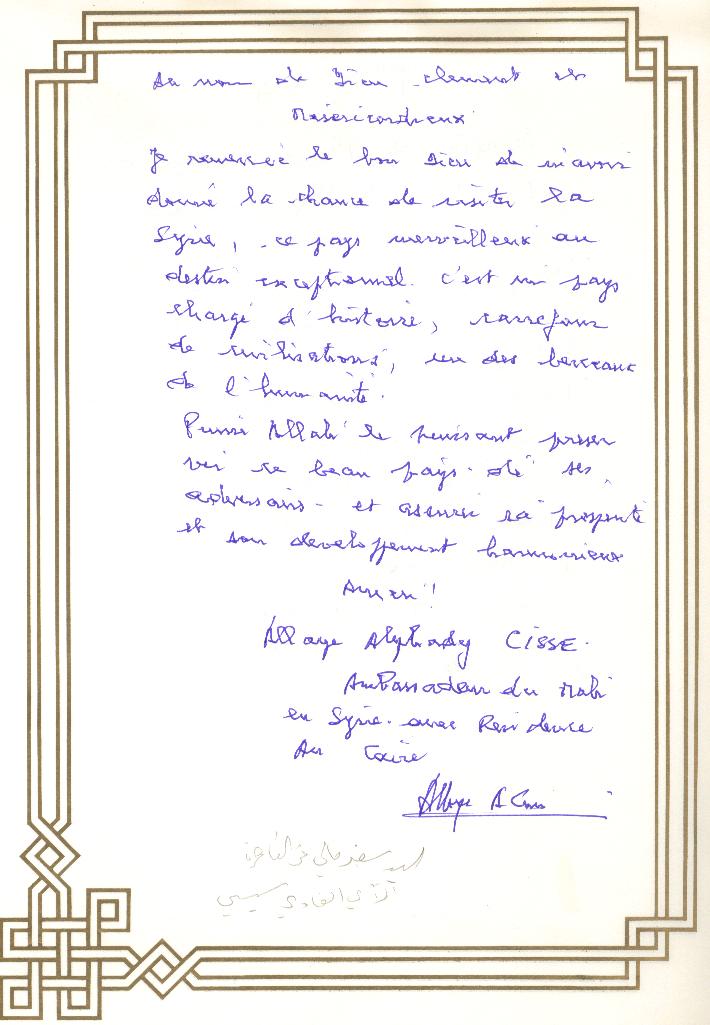 Au nom de Dieu clement et
Misericordieux
Je remercie le bon Dieu de m'avoir
donné la chance de visiter la
Syrie, ce pays merveilleux au
destin exceptionnel. C'est un pays
chargé d'histoire, carrefour
de civilisations, un des berceaux
de l'humanité.
Puisse Allah le puissant preser
ver ce beau pays de ses
adversaires et assurer sa prosperité
et son developpement harmonieux
Amen!
Allaye Alphady CISSE.
Ambassadeur du Mali
en Syrie avec Residence
Au Caire
السيد سفير مالي في القاهرة
سيسي